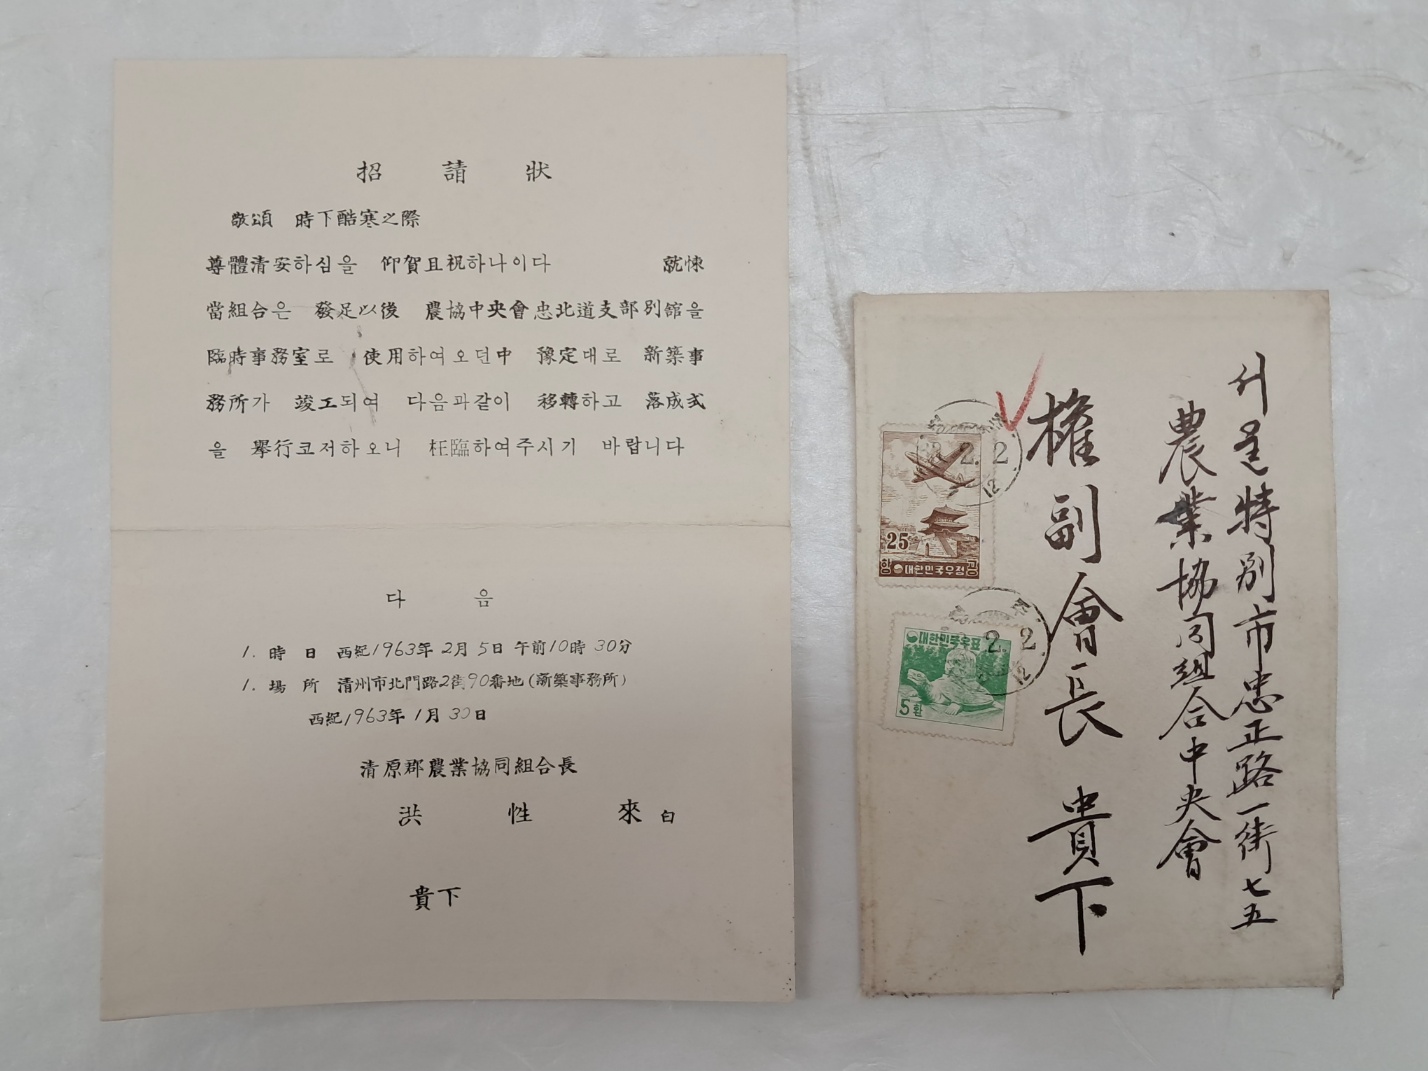 招請狀
敬頌 時下酷寒之際
尊體清安하심을 仰賀且祝하나이다 就悚
當組合은 發足以後 農協中央會忠北道支部別館을
臨時事務室로 使用하여오던中 豫定대로 新築事
務所가 竣工되여 다음과같이 移轉하고 落成式
을 擧行코저하오니 枉臨하여주시기 바랍니다
다음
1. 時日 西紀1963年 2月 5日 午前10時 30分
1. 場所 清州市北門路2街90番地(新築事務所)
西紀1963年 1月 30日
清原郡農業協同組合長
洪性來 白
貴下
서울特別市忠正路一街七五
農業協同組合中央會
權副會長 貴下
25
항공
대한민국우정
2.2
12
대한민국우표
5환
2.2
12